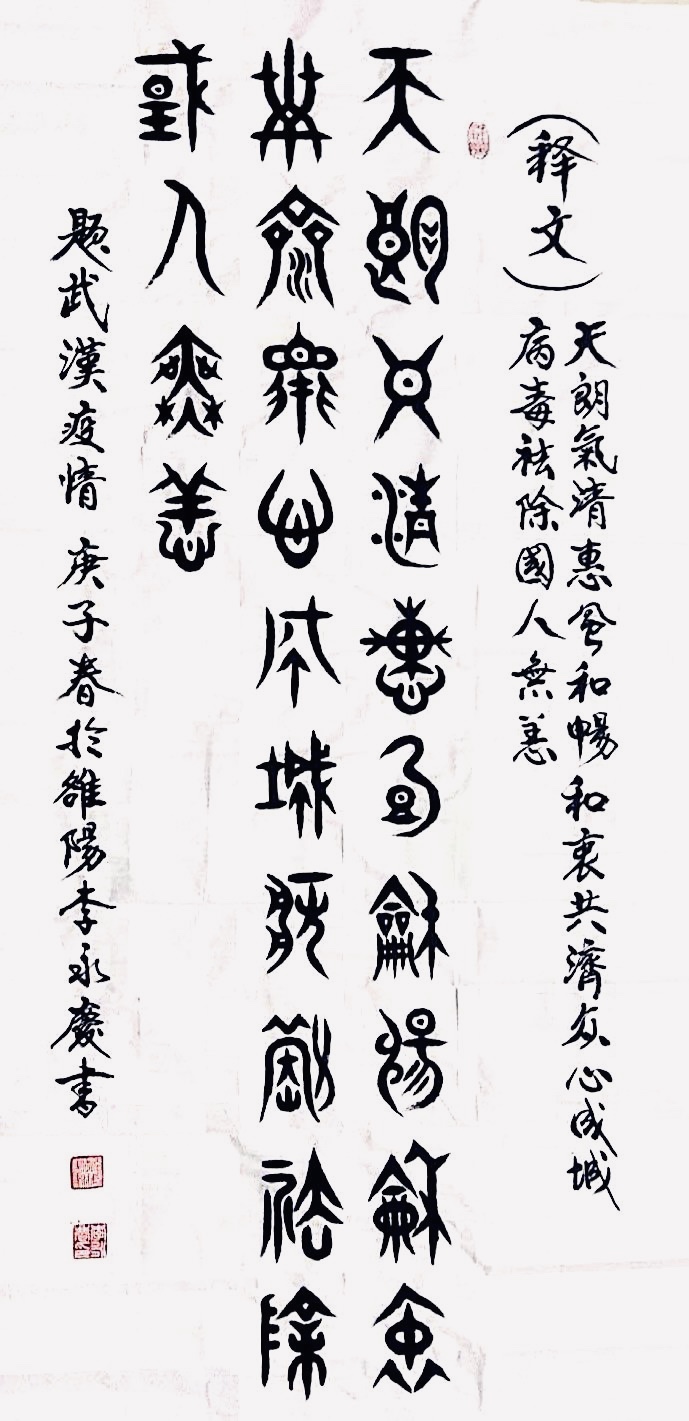 (释文)
天朗氣清惠風和暢和衷共濟众心成城
病毒祛除國人無恙
天朗氣清惠風龢暢龢衷
共濟眾心成城病毒祛除
國人無恙
題武漢疫情 庚子春於雒陽李永慶書